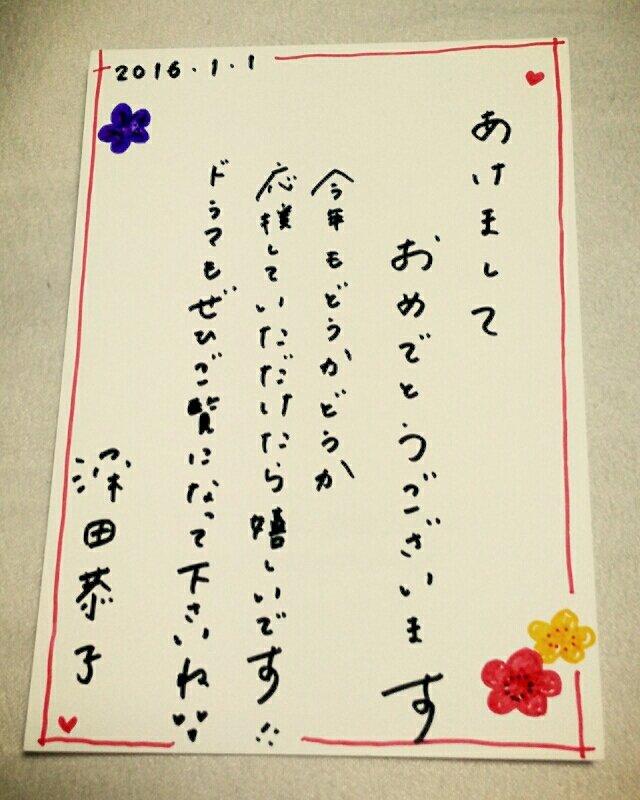 2016.1.1
あけまして
おめでとうございます
今年もどうかどうか
応援していただけたら嬉しいです
ドラマもぜひご覧になって下さいね
深田恭子